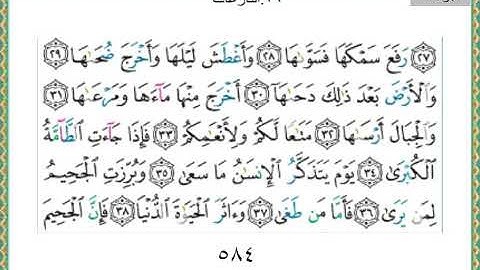 ﴿٢٧﴾ رَفَعَ سَمْكَهَا فَسَوَّىٰهَا ﴿٢٨﴾ وَأَغْطَشَ لَيْلَهَا وَأَخْرَجَ ضُحَىٰهَا ﴿٢٩﴾
وَالْأَرْضَ بَعْدَ ذَٰلِكَ دَحَىٰهَا ﴿٣٠﴾ أَخْرَجَ مِنْهَا مَاءَهَا وَمَرْعَىٰهَا ﴿٣١﴾
وَالْجِبَالَ أَرْسَىٰهَا ﴿٣٢﴾ مَتَٰعًا لَّكُمْ وَلِأَنْعَٰمِكُمْ ﴿٣٣﴾ فَإِذَا جَاءَتِ الطَّامَّةُ
الْكُبْرَىٰ ﴿٣٤﴾ يَوْمَ يَتَذَكَّرُ الْإِنسَٰنُ مَا سَعَىٰ ﴿٣٥﴾ وَبُرِّزَتِ الْجَحِيمُ
لِمَن يَرَىٰ ﴿٣٦﴾ فَأَمَّا مَن طَغَىٰ ﴿٣٧﴾ وَءَاثَرَ الْحَيَوٰةَ الدُّنْيَا ﴿٣٨﴾ فَإِنَّ الْجَحِيمَ
٥٨٤